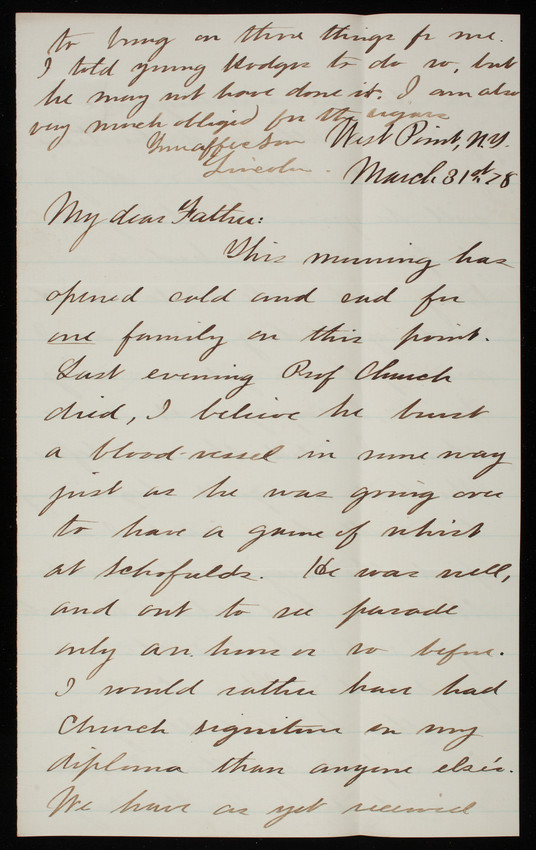 to bring on those things for me.
I told young Hodges to do so, but
he may not have done it. I am also
very much obliged for the cigars
Your affec son
Lincoln.
West Point, N.Y.
March 31st 78
My dear Father:
This morning has
opened cold and sad for
one family on this point.
Last evening Prof Church
died, I believe he burst
a blood-vessel in some way
just as he was going over
to have a game of whist
at Schofields. He was well,
and out to see parade
only an hour or so before.
I would rather have had
Church signature on my
diploma than anyone else's.
We have as yet received